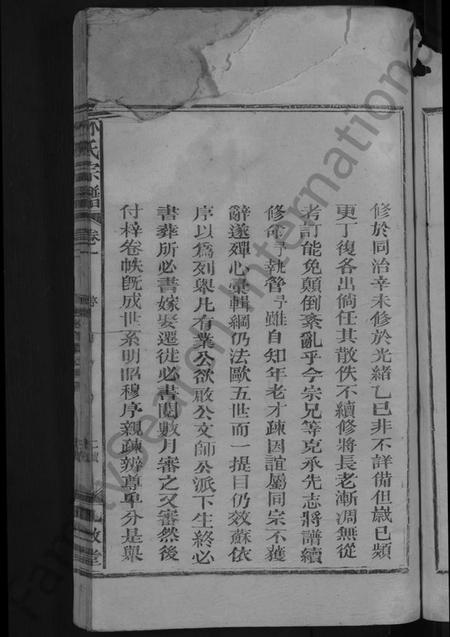 修於同治辛未修於光緒乙巳非不詳備但歲已頻
更丁復各出倘任其散佚不續修將長老漸凋無從
考訂能免顛倒紊亂乎今宗兄等克承先志將譜續
修命予執管予雖自知年老才疎因誼屬同宗不獲
辭遂殫心彙輯綱仍法歐五世而一提目仍效蘇依
序以為列舉凡有業公欲敗公文師公派下生終必
書葬所必書嫁娶遷徙必書閱數月審之又審然後
付梓卷帙既成世系明昭穆序親疎辨尊卑分是舉
氏宗譜
卷一
序
堂
Familysearch International